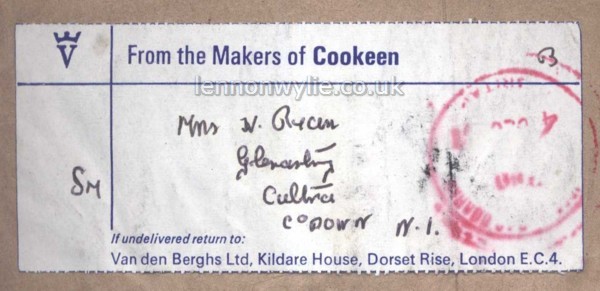 V
From the Makers of Cookeen
lennonwylie.co.uk
B
Mrs W.
Cultra
Sm
Co DOWN N.I.
If undelivered return to:
Van den Berghs Ltd, Kildare House, Dorset Rise, London E.C.4.